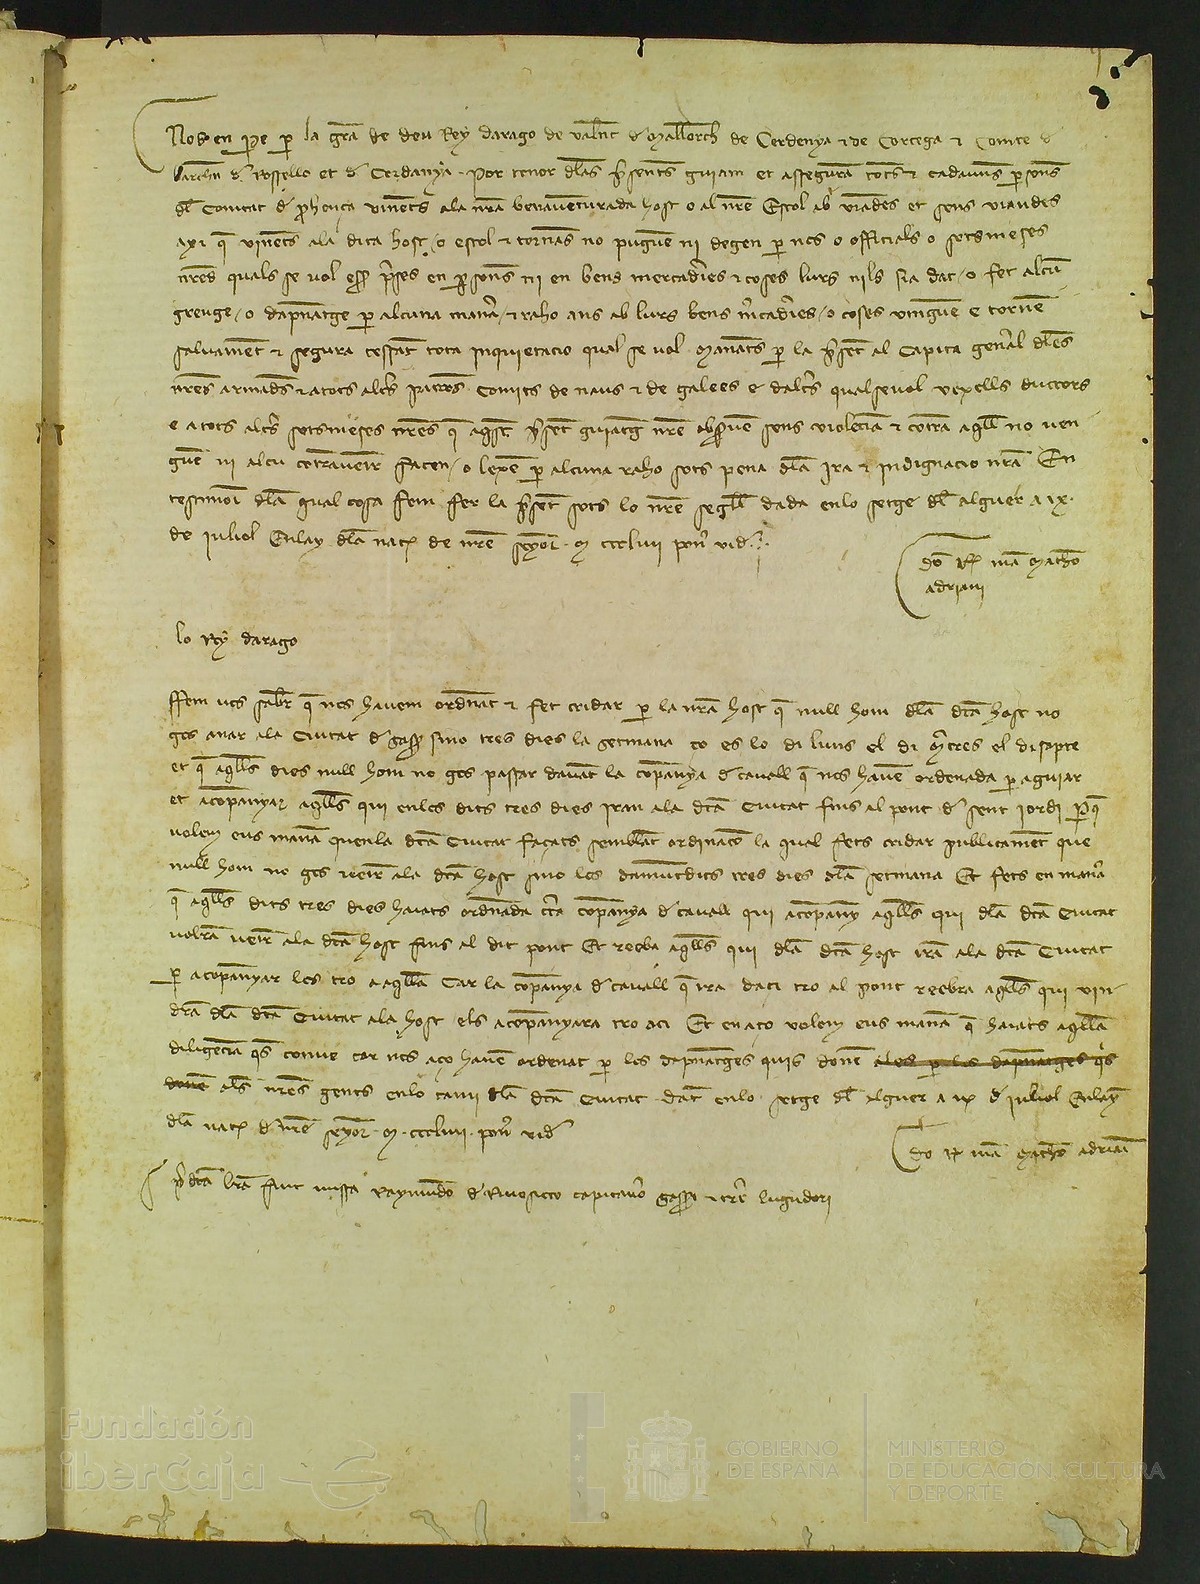 Nos en Pe p la gra de deu Rey darago de valenc e Mallorch de Cerdenya e de Corcega e Comte d
Barchn d Rossello et d Cerdanya. Por tenor dlas psents guiam et asseguram tots e cadauns psones
dl Comtat d prohenca vinents ala nra benauenturada host o al nre Estol ab viandes et sens viandes
axi q vinents ala dita host o estol e tornas no puguen ni degen p nos o officials o sotsmeses
nres quals se vol esser preses en psones ni en bens mercaderies e coses lurs nils sia dat o fet alcun
greuge o dapnatge p alcuna mana e raho ans ab lurs bens mcaderies o coses vinguen e tornen
saluament e segura cessant tota inquietacio qual se vol. Manants p la psent al Capita general dles
nres armades e atots altres patrons Comits de naus e de galees e daltres qualseuol vexells ductors
e atots altres sotsmeses nres q aqst psent guiatge nre obseruen sens violencia e contra aqll no ven
guen ni alcu contrauenir facen o lexen p alcuna raho sots pena dla ira e indignacio nra En
testimoni dla qual cosa fem fer la psent sots lo nre segell dada enlo setge dl alguer a ix.
de juliol Enlay dla nat de nre senyor. M cccliiii
Do R ma Matheo
adriani
lo Rey darago
ffem uos saber q nos hauem ordenat e fet cridar p la nra host q null hom dla dta host no
gos anar ala Ciutat d sasser sino tres dies la setmana ço es lo diluns el dimecres el disapte
et q aqlls dies null hom no gos passar dauant la companya d cauall q nos hauem ordenada p aguiar
et acompanyar aqlls qui enlos dits tres dies iran ala dta Ciutat fins al pont d sent iordi Pq
volem eus manam quenla dta Ciutat façats semblant ordinacio la qual fets cridar publicament que
null hom no gos venir ala dta host sino los damuntdits tres dies dla setmana Et fets en manera
q aqlls dits tres dies haiats ordenada certa companya d cauall qui acompany aqlls qui dla dta Ciutat
volran venir ala dta host fins al dit pont Et reeba aqlls qui dla dta host iran ala dta Ciutat
p acompanyar los tro aaqlla Car la companya d cauall q ira daci tro al pont reebra aqlls qui vin
dran dla dta Ciutat ala host els acompanyara tro aci Et en aço volem eus manam q haiats aqlla
diligencia qs conue car nos aço hauem ordenat p los dapnatges quis donen a les p los dapnatges qs
donen als nres gents enlo cami dla dta Ciutat. Dat enlo setge dl alguer a ix d juliol Enlay
dla nat d nre senyor. M. cccliiii.
Do R ma Matheo adriani
pdta lra fuit missa Raymundo d Riuosicco capitaneo sasseri e lugudori